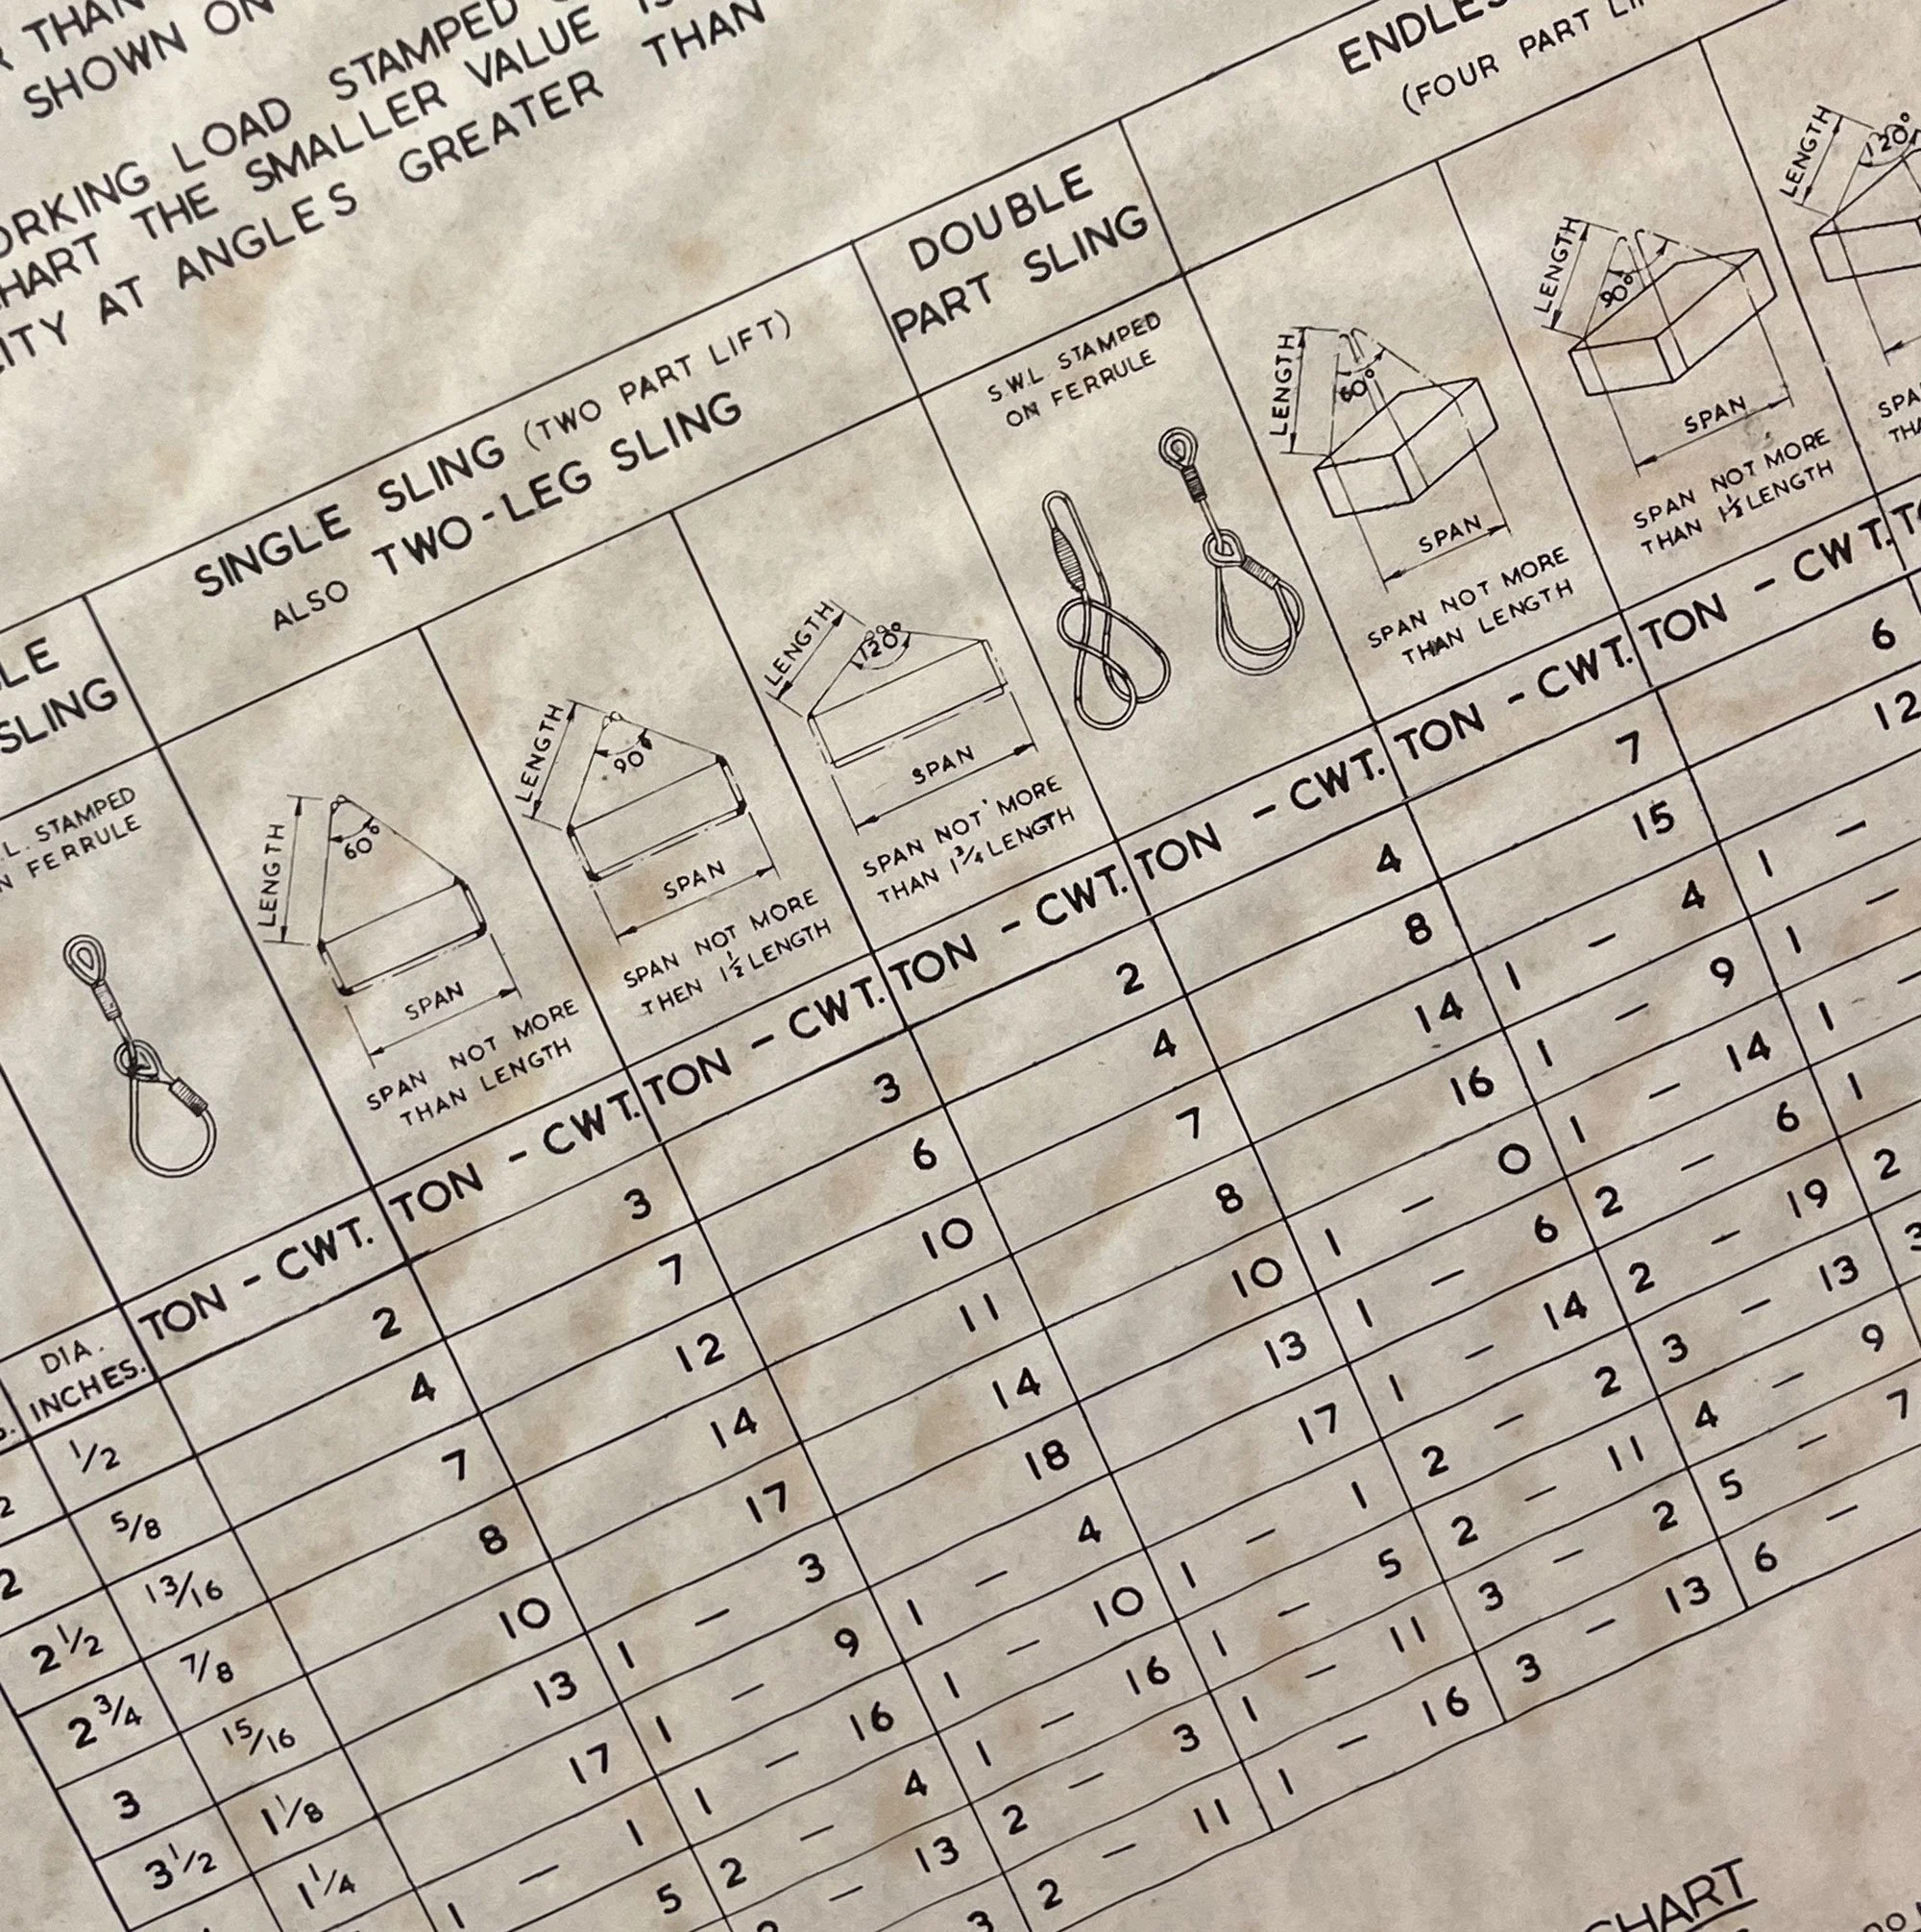 THAN
SHOWN ON
WORKING LOAD STAMPED
CHART THE SMALLER VALUE IS
AT ANGLES GREATER THAN
SLING
STAMPED
FERRULE
SINGLE SLING (TWO PART LIFT)
ALSO TWO-LEG SLING
LENGTH
60°
SPAN
SPAN NOT MORE
THAN LENGTH
LENGTH
90°
SPAN
SPAN NOT MORE
THEN 1½ LENGTH
LENGTH
120°
SPAN
SPAN NOT MORE
THAN 1¾ LENGTH
DOUBLE
PART SLING
S.W.L STAMPED
ON FERRULE
(FOUR PART
LENGTH
60°
SPAN
SPAN NOT MORE
THAN LENGTH
LENGTH
90°
SPAN
SPAN NOT MORE
THAN 1½ LENGTH
LENGTH
120°
DIA.
INCHES.
TON - CWT. TON - CWT. TON - CWT. TON - CWT. TON - CWT. TON - CWT. TON - CWT.
1/2 2 3 3 2 4 7 6
2 5/8 4 7 6 4 8 15 12
2 1/2 13/16 7 12 10 7 14 1 - 4 1 -
2 3/4 7/8 8 14 11 8 16 1 - 9 1 -
3 15/16 10 17 14 10 1 - 0 1 - 14 1 -
3 1/2 1 1/8 13 1 - 3 18 13 1 - 6 2 - 6 1
1 1/4 17 1 - 9 1 - 4 17 1 - 14 2 - 19 2
1 - 1 1 - 16 1 - 10 1 - 1 2 - 2 3 - 13 3
5 2 - 4 1 - 16 1 - 5 2 - 11 4 - 9
- 13 2 - 3 1 - 11 3 - 2 5 - 7
3 2 - 11 1 - 16 3 - 13 6 -
CHART